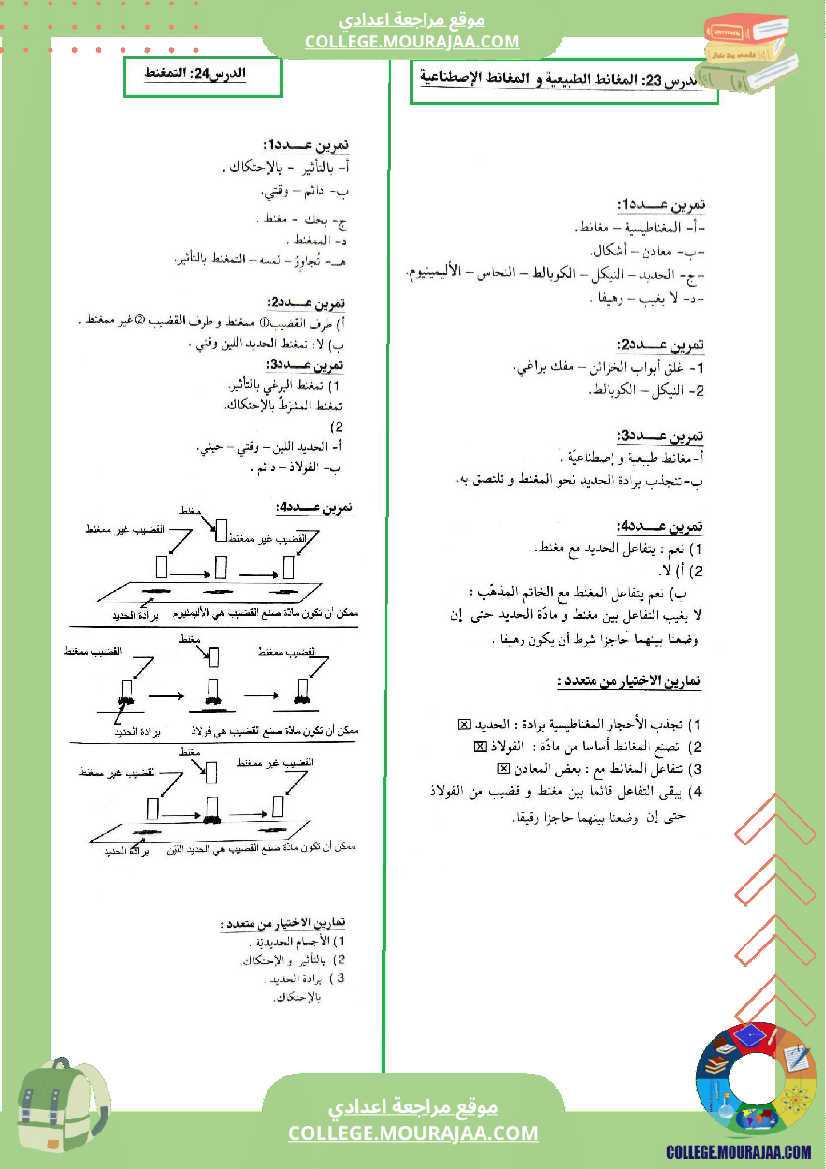 موقع مراجعة اعدادي
COLLEGE.MOURAJAA.COM
الدرس 23: المغانط الطبيعية و المغانط الإصطناعية
تمرين عــــدد1:
-أ- المغناطيسية – مغانط.
-ب- معادن – أشكال.
-ج- الحديد – النيكل – الكوبالط – النحاس – الأليمينيوم.
-د- لا يغيب – رهيفا .
تمرين عــــدد2:
1- غلق أبواب الخزائن – مفك براغي.
2- النيكل – الكوبالط.
تمرين عــــدد3:
أ- مغانط طبيعية و إصطناعيّة .
ب- تنجذب برادة الحديد نحو المغنط و تلتصق به.
تمرين عــــدد4:
1) نعم : يتفاعل الحديد مع مغنط.
2) أ) لا.
ب) نعم يتفاعل المغنط مع الخاتم المذهّب :
لا يغيب التفاعل بين مغنط و مادّة الحديد حتى إن
وضعنا بينهما حاجزا شرط أن يكون رهيفا .
تمارين الاختيار من متعدد :
1) تجذب الأحجار المغناطيسية برادة : الحديد ☒
2) تصنع المغانط أساسا من مادّة : الفولاذ ☒
3) تتفاعل المغانط مع : بعض المعادن ☒
4) يبقى التفاعل قائما بين مغنط و قضيب من الفولاذ
حتى إن وضعنا بينهما حاجزا رقيقا.
الدرس24: التمغنط
تمرين عــــدد1:
أ- بالتأثير - بالإحتكاك .
ب- دائم – وقتي.
ج- بحك - مغنط .
د- الممغنط .
هـ- تُجاوِرُ – لمسه – التمغنط بالتأثير.
تمرين عــــدد2:
أ) طرف القضيب① ممغنط و طرف القضيب ②غير ممغنط .
ب) لا: تمغنط الحديد اللين وقتي .
تمرين عــــدد3:
1) تمغنط البرغي بالتأثير.
تمغنط المشرَط بالإحتكاك.
2)
أ- الحديد اللين – وقتي – حيني.
ب- الفولاذ – دائم .
تمرين عــــدد4:
مغنط
القضيب غير ممغنط
القضيب غير ممغنط
برادة الحديد
ممكن أن تكون مادّة صنع القضيب هي الأليمنيوم
مغنط
القضيب ممغنط
القضيب ممغنط
برادة الحديد
ممكن أن تكون مادّة صنع القضيب هي فولاذ
مغنط
القضيب غير ممغنط
القضيب غير ممغنط
برادة الحديد
ممكن أن تكون مادّة صنع القضيب هي الحديد الليّن
تمارين الاختيار من متعدد :
1) الأجسام الحديديّة .
2) بالتأثير و الإحتكاك.
3 ) برادة الحديد .
بالإحتكاك.
موقع مراجعة اعدادي
COLLEGE.MOURAJAA.COM
COLLEGE.MOURAJAA.COM